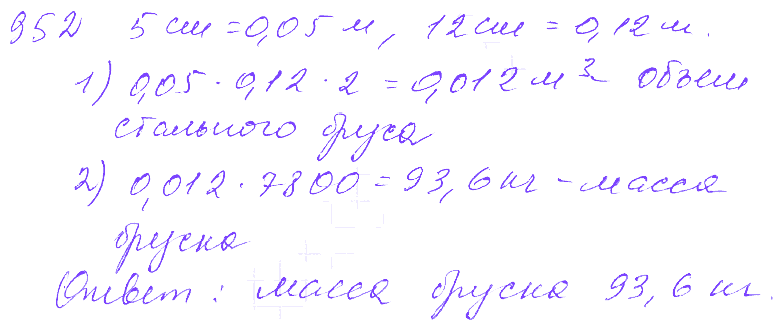 952 5 см = 0,05 м, 12 см = 0,12 м.
1) 0,05 · 0,12 · 2 = 0,012 м³ - объем
стального бруса
2) 0,012 · 7800 = 93,6 кг - масса
бруска
Ответ: масса бруска 93,6 кг.